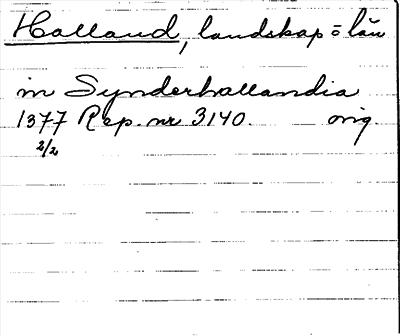 Halland, landskap o län
in Synderhallandia
1377 Rep. nr 3140. orig.
2/2